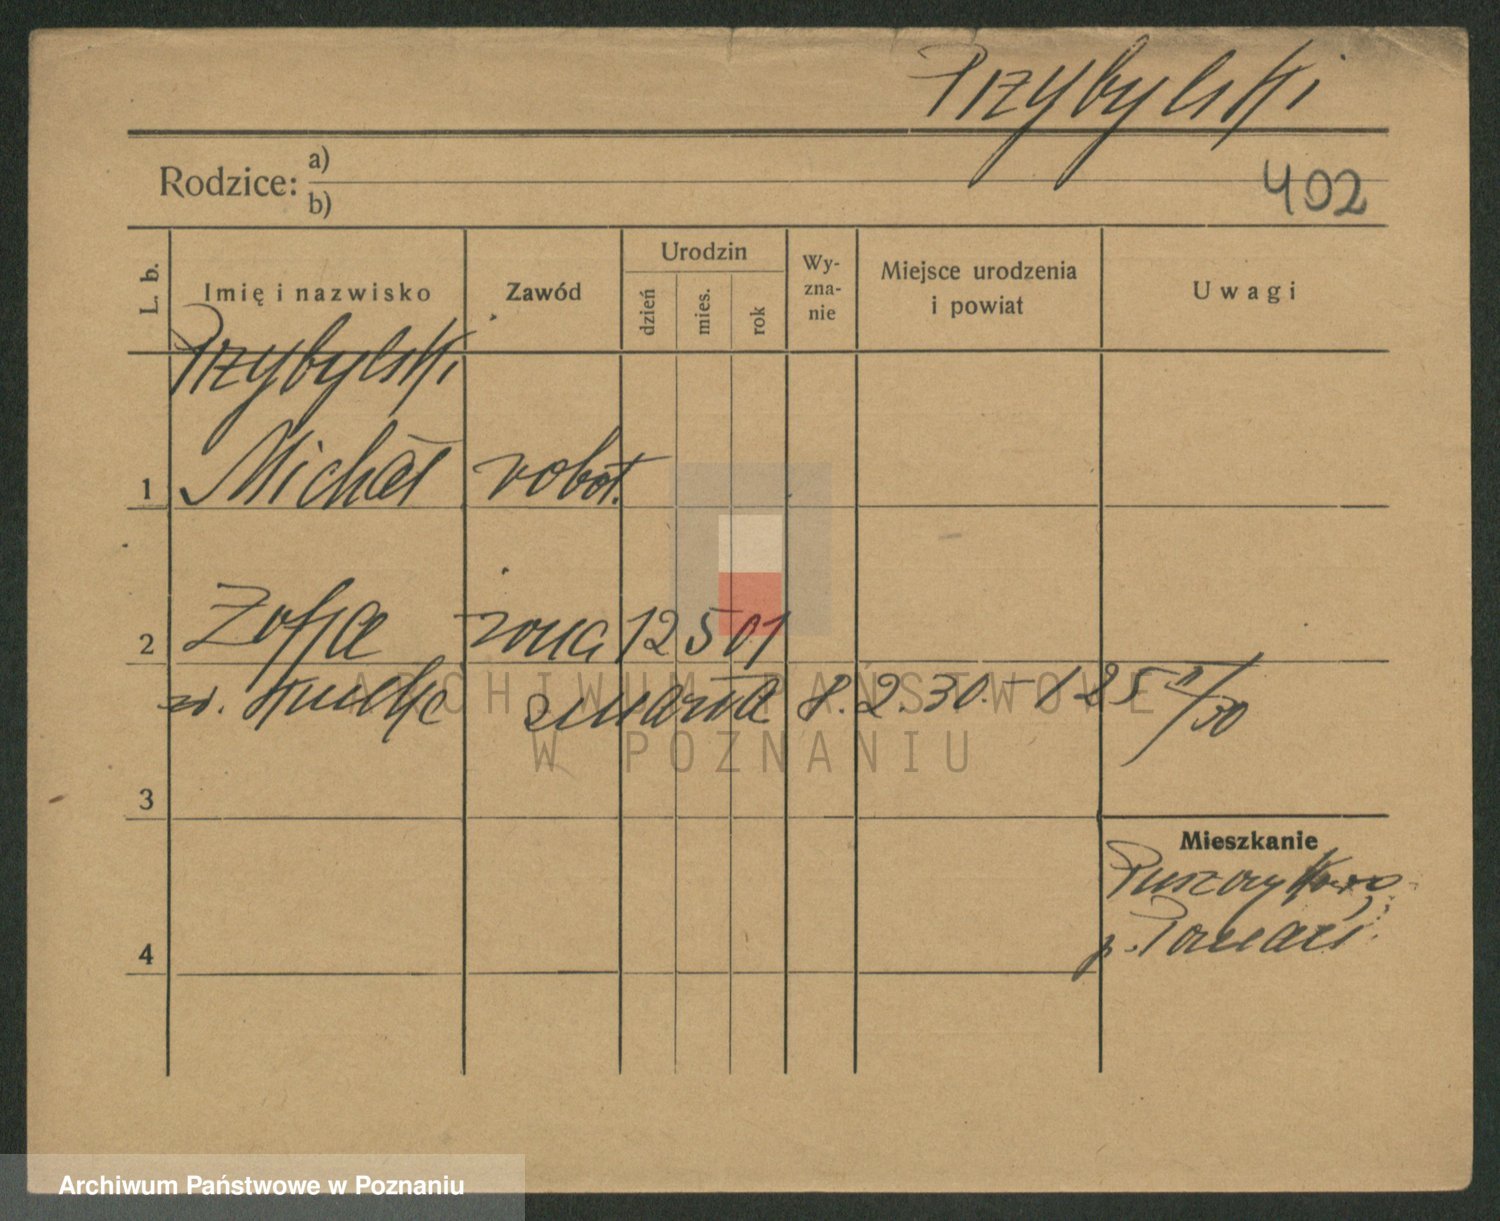 Przybylski
Rodzice: a)
b)
402
L. b.
Imię i nazwisko
Zawód
Urodzin
dzień
mies.
rok
Wy-
zna-
nie
Miejsce urodzenia
i powiat
Uwagi
Przybylski
1 Michał robot.
2 Zofja żona 12 5 01
zd. zmarła 8.2.30. - 125 /30
3
Mieszkanie
Puszczykowo
p. Poznań.
4
ARCHIWUM PAŃSTWOWE
W POZNANIU
Archiwum Państwowe w Poznaniu